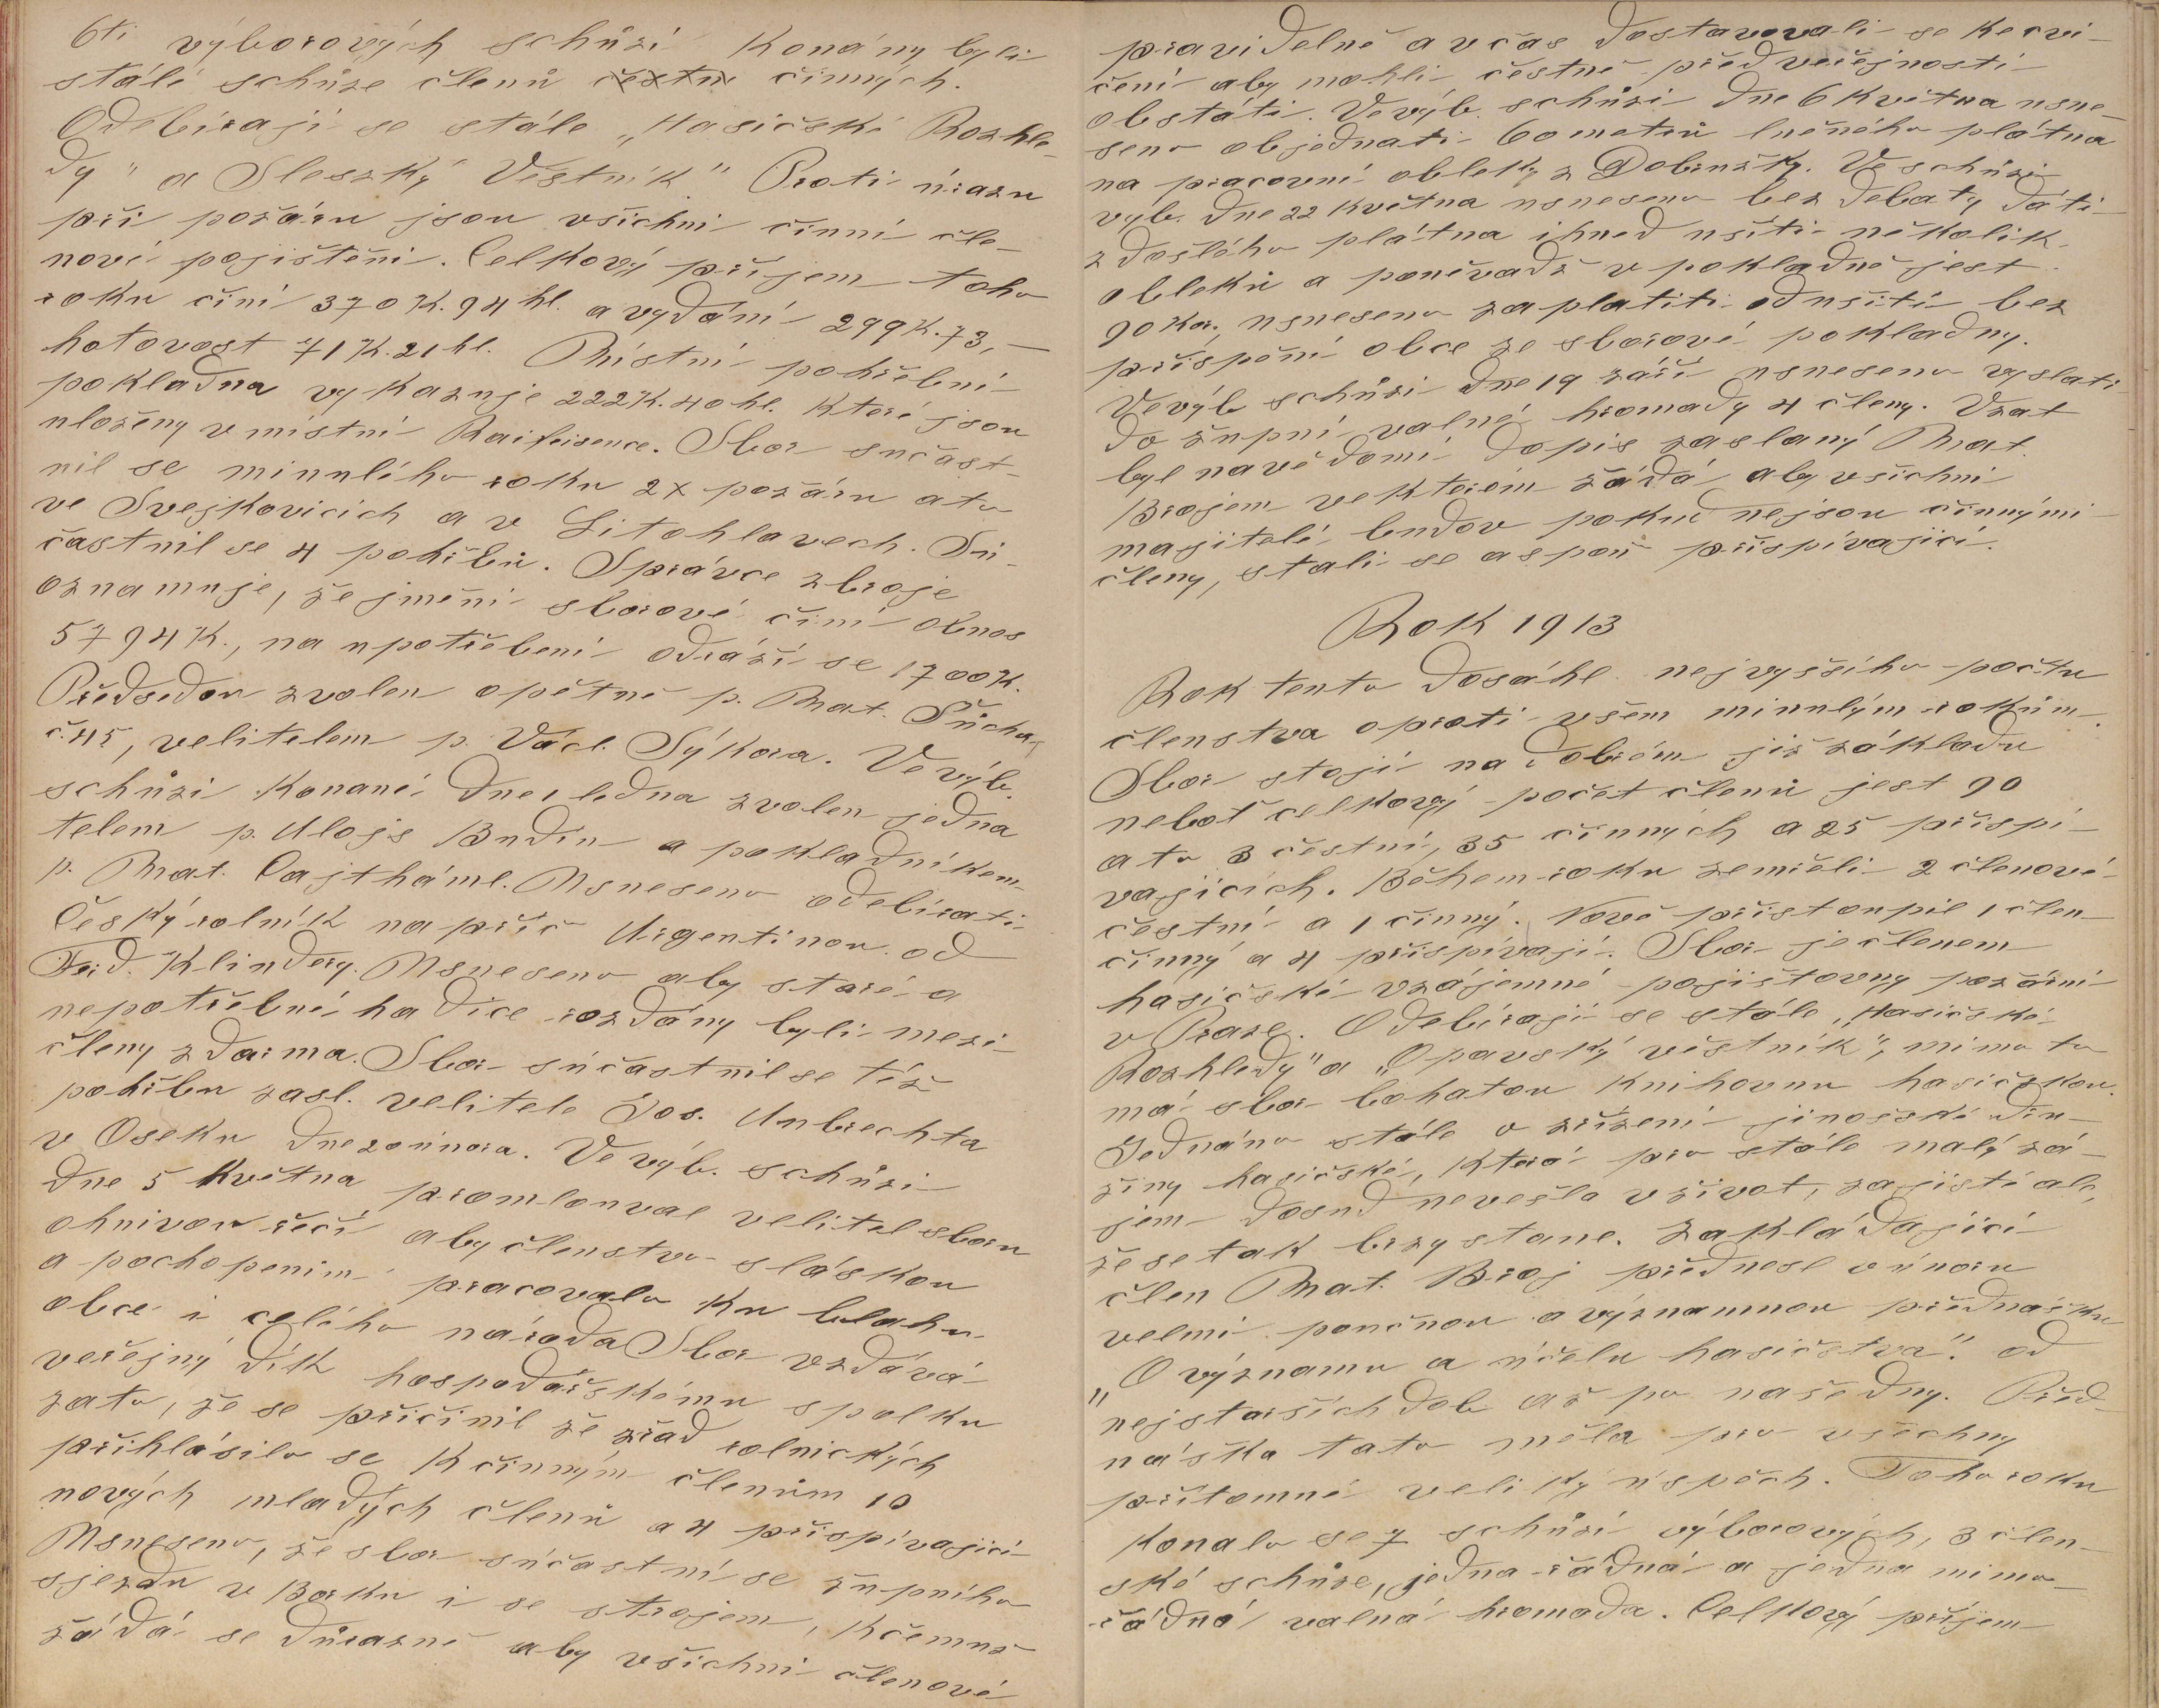 6ti výborových schůzí konány byli
stálé schůze členů čestn činných.
Odebírají se stále „Hasičské Rozhle-
dy" a Slezský Věstník" Proti úrazu
při požáru jsou všichni činní čle-
nové pojištěni. Celkový příjem toho
roku činí 370K.94 hl. a vydání 299K.73,-
hotovost 71K.21 hl. Místní pohřební
pokladna vykazuje 222K.40 hl. které jsou
uloženy v místní Raifeisence. Sbor súčast-
nil se minulého roku 2x požáru a to
ve Svejkovicích a v Litohlavech. Sú-
častnil se 4 pohřbů. Správce zbroje
oznamuje, že jmění sborové činí obnos
5794K., na upotřebení odráží se 1700K.
Předsedou zvolen opětně p. Mat. Šůcha,
č.45, velitelem p. Václ. Sýkora. Ve výb.
schůzi konané dne 1 ledna zvolen jedna
telem p. Alojs Budín a pokladníkem
p. Mat. Cajtháml. Usneseno odebírati
Český rolník na příč Argentinou od
Ferd. Klindery. Usneseno aby staré a
nepotřebné hadice rozdány byli mezi
členy zdarma. Sbor súčastnil se též
pohřbu zasl. velitele Jos. Aubrechta
v Oseku dne 20 února. Ve výb. schůzi
dne 5 května promlouval velitel sboru
ohnivou řečí aby členstvo s láskou
a pochopením pracovalo ku blahu
obce i celého národa Sbor vzdává
veřejný dík hospodářskému spolku
zato, že se přičinil že z řad rolnických
přihlásilo se k činným členům 10
nových mladých členů a 4 přispívající
Usneseno, že sbor súčastní se župního
sjezdu v Borku i se strojem, k čemuž
žádá se důrazně aby všichni členové
pravidelně a včas dostavovali se ke cvi-
čení aby mohli čestně před veřejností
obstáti. Ve výb. schůzi dne 6 května usne-
seno objednati 60 metrů lněného plátna
na pracovní obleky z Dobrušky. Ve schůzi
výb. dne 22 května usneseno bez debaty dáti
z došlého plátna ihned ušíti několik
obleků a poněvadž v pokladně jest
90 Kor., usneseno zaplatiti od ušití bez
přispění obce ze sborové pokladny.
Ve výb schůzi dne 19 září usneseno vyslati
do župní valné hromady 4 členy. Vzat
byl na vědomí dopis zaslaný Mat.
Brojem ve kterém žádá aby všichni
majitelé budov pokud nejsou činnými
členy, stali se aspoň přispívající.
Rok 1913
Rok tento dosáhl nejvyššího počtu
členstva oproti všem minulým rokům.
Sbor stojí na dobrém již základu
neboť celkový počet členů jest 90
a to 3 čestní, 35 činných a 25 přispí-
vajících. Během roku zemřeli 2 členové
čestní a 1 činný. Nově přistoupil 1 člen
činný a 4 přispívají. Sbor je členem
hasičské vzájemné pojišťovny požární
v Praze. Odebírají se stále „Hasičské
Rozhledy" a „Opavský věstník", mimo to
má sbor bohatou knihovnu hasičskou.
Jednáno stále o zřízení jinošské dru-
žiny hasičské, která pro stále malý zá-
jem dosud nevešla v život, zajisté ale,
že se tak brzy stane. Zakládající
člen Mat. Broj přednesl v únoru
velmi poučnou a významnou přednášku
„O významu a účelu hasičstva" od
nejstarších dob až po naše dny. Před-
náška tato měla pro všechny
přítomné veliký úspěch. Toho roku
konalo se 7 schůzí výborových, 3 člen-
ské schůze, jedna řádná a jedna mimo-
řádná valná hromada. Celkový příjem